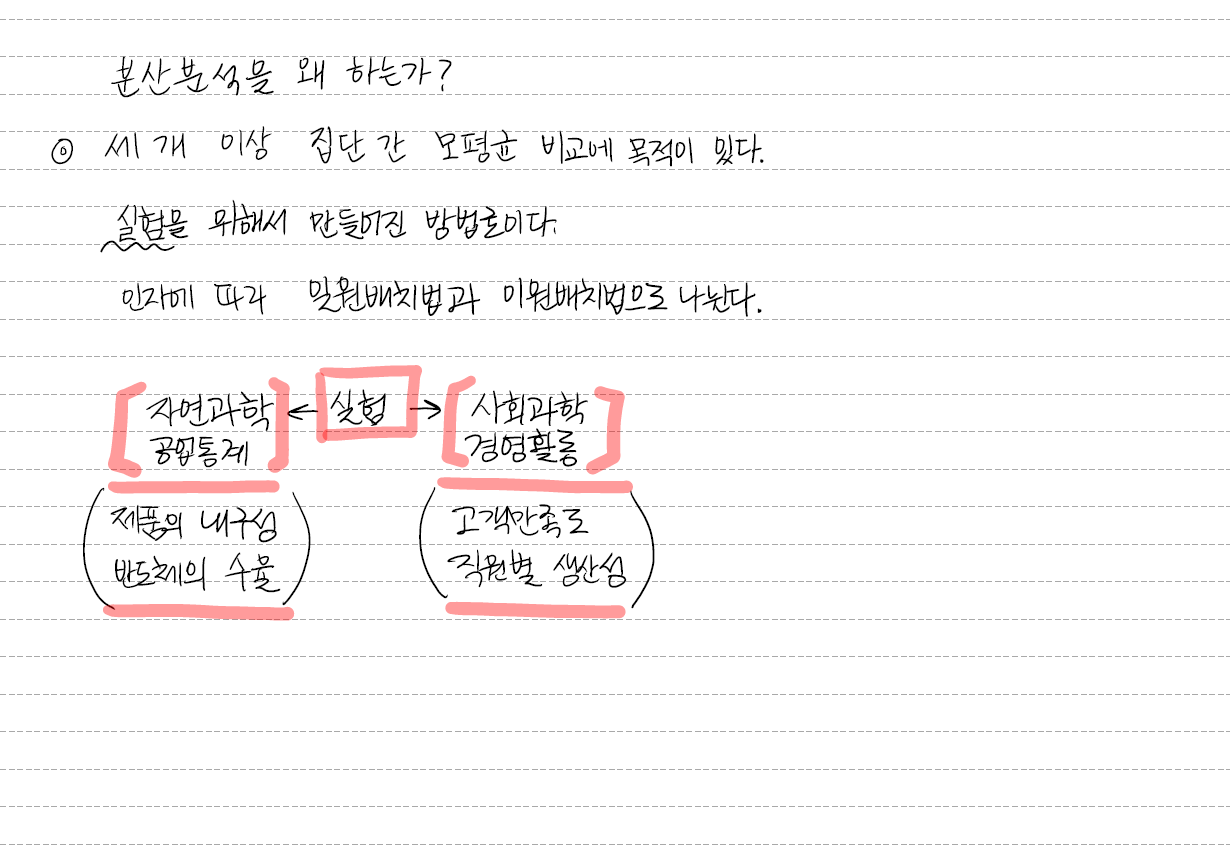 분산분석을 왜 하는가?
◎ 세 개 이상 집단 간 모평균 비교에 목적이 있다.
실험을 위해서 만들어진 방법론이다.
인자에 따라 일원배치법과 이원배치법으로 나뉜다.
[자연과학 ← 실험 → [사회과학
공업통계] 경영활동]
(제품의 내구성 (고객만족도
반도체의 수율) 직원별 생산성)